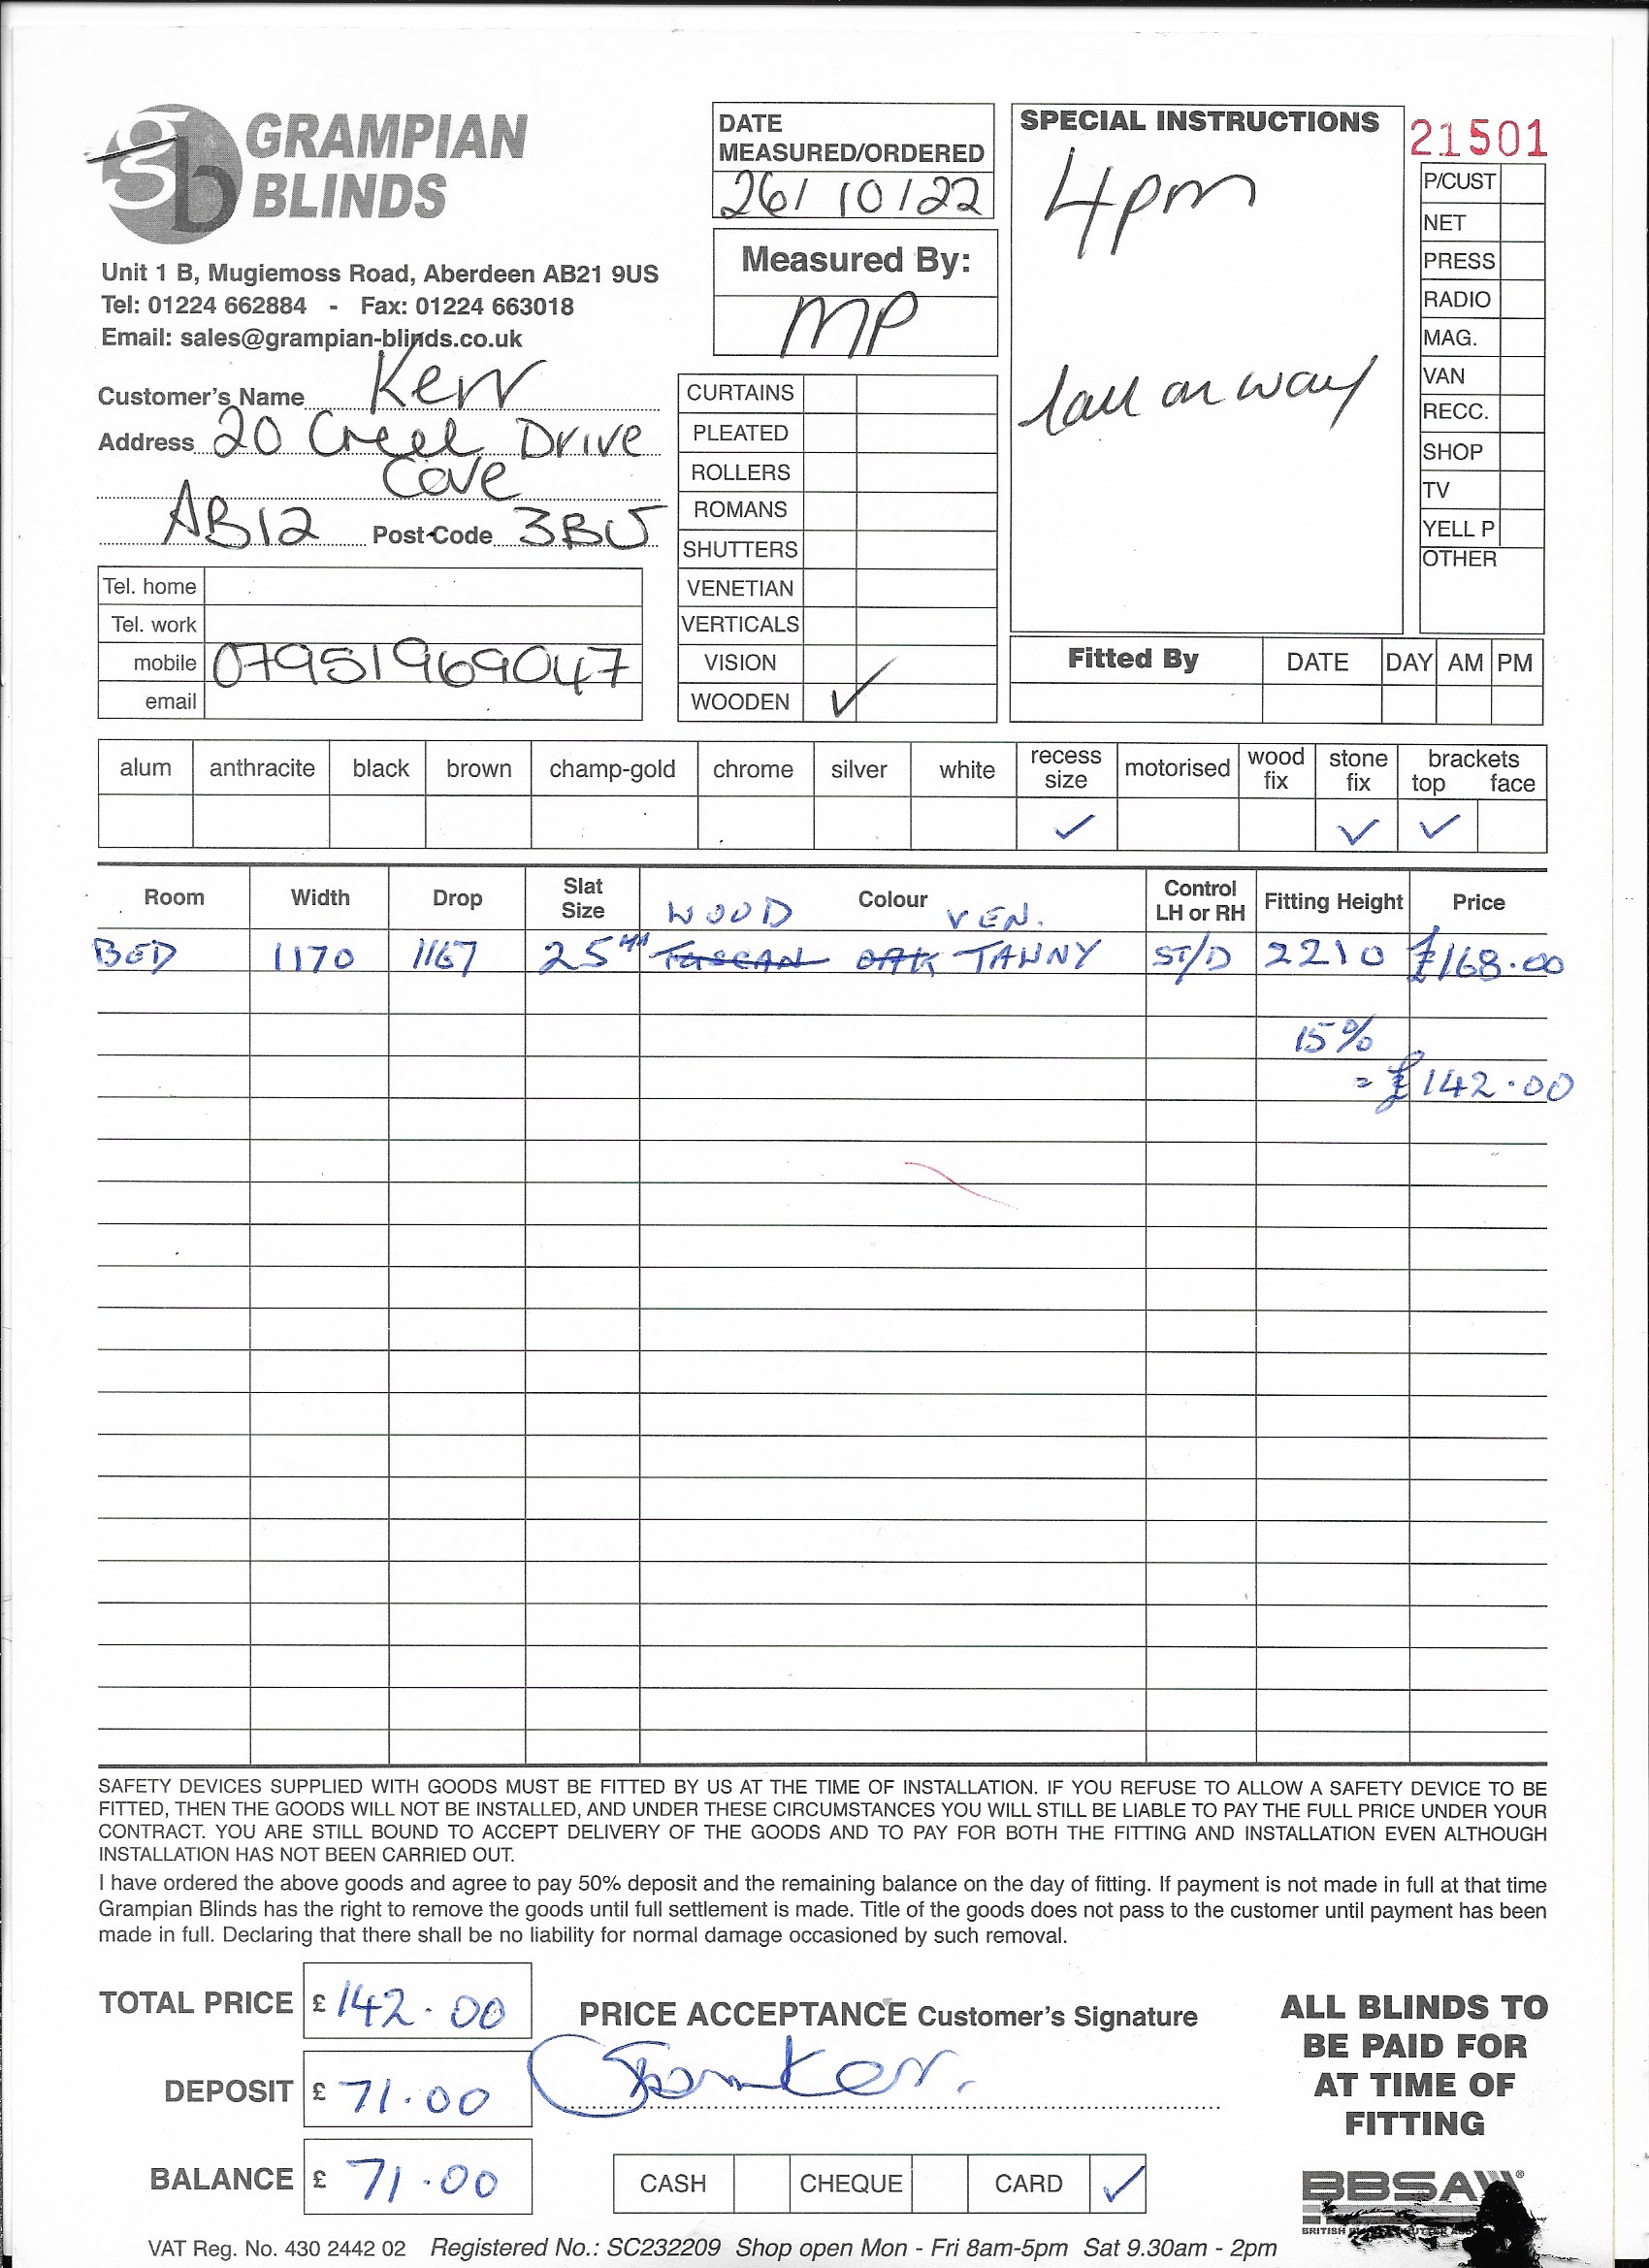 GRAMPIAN
BLINDS
Unit 1 B, Mugiemoss Road, Aberdeen AB21 9US
Tel: 01224 662884 - Fax: 01224 663018
Email: sales@grampian-blinds.co.uk
Customer's Name Kerr
Address 20 Creel Drive
Cove
AB12 Post Code 3BU
Tel. home
Tel. work
mobile 07951969047
email
DATE
MEASURED/ORDERED
26/10/22
Measured By:
MP
CURTAINS
PLEATED
ROLLERS
ROMANS
SHUTTERS
VENETIAN
VERTICALS
VISION
WOODEN ✓
SPECIAL INSTRUCTIONS
4pm
on way
21501
P/CUST
NET
PRESS
RADIO
MAG.
VAN
RECC.
SHOP
TV
YELL P
OTHER
Fitted By DATE DAY AM PM
alum anthracite black brown champ-gold chrome silver white recess size motorised wood fix stone fix brackets top face
✓ ✓ ✓
Room Width Drop Slat Size Colour Control LH or RH Fitting Height Price
WOOD VEN.
BED 1170 1167 25mm TUSCAN OAK TAWNY ST/D 2210 £168.00
15%
= £142.00
SAFETY DEVICES SUPPLIED WITH GOODS MUST BE FITTED BY US AT THE TIME OF INSTALLATION. IF YOU REFUSE TO ALLOW A SAFETY DEVICE TO BE
FITTED, THEN THE GOODS WILL NOT BE INSTALLED, AND UNDER THESE CIRCUMSTANCES YOU WILL STILL BE LIABLE TO PAY THE FULL PRICE UNDER YOUR
CONTRACT. YOU ARE STILL BOUND TO ACCEPT DELIVERY OF THE GOODS AND TO PAY FOR BOTH THE FITTING AND INSTALLATION EVEN ALTHOUGH
INSTALLATION HAS NOT BEEN CARRIED OUT.
I have ordered the above goods and agree to pay 50% deposit and the remaining balance on the day of fitting. If payment is not made in full at that time
Grampian Blinds has the right to remove the goods until full settlement is made. Title of the goods does not pass to the customer until payment has been
made in full. Declaring that there shall be no liability for normal damage occasioned by such removal.
TOTAL PRICE £ 142.00
DEPOSIT £ 71.00
BALANCE £ 71.00
PRICE ACCEPTANCE Customer's Signature
Kerr.
CASH CHEQUE CARD ✓
ALL BLINDS TO
BE PAID FOR
AT TIME OF
FITTING
BBSA
BRITISH
VAT Reg. No. 430 2442 02 Registered No.: SC232209 Shop open Mon - Fri 8am-5pm Sat 9.30am - 2pm